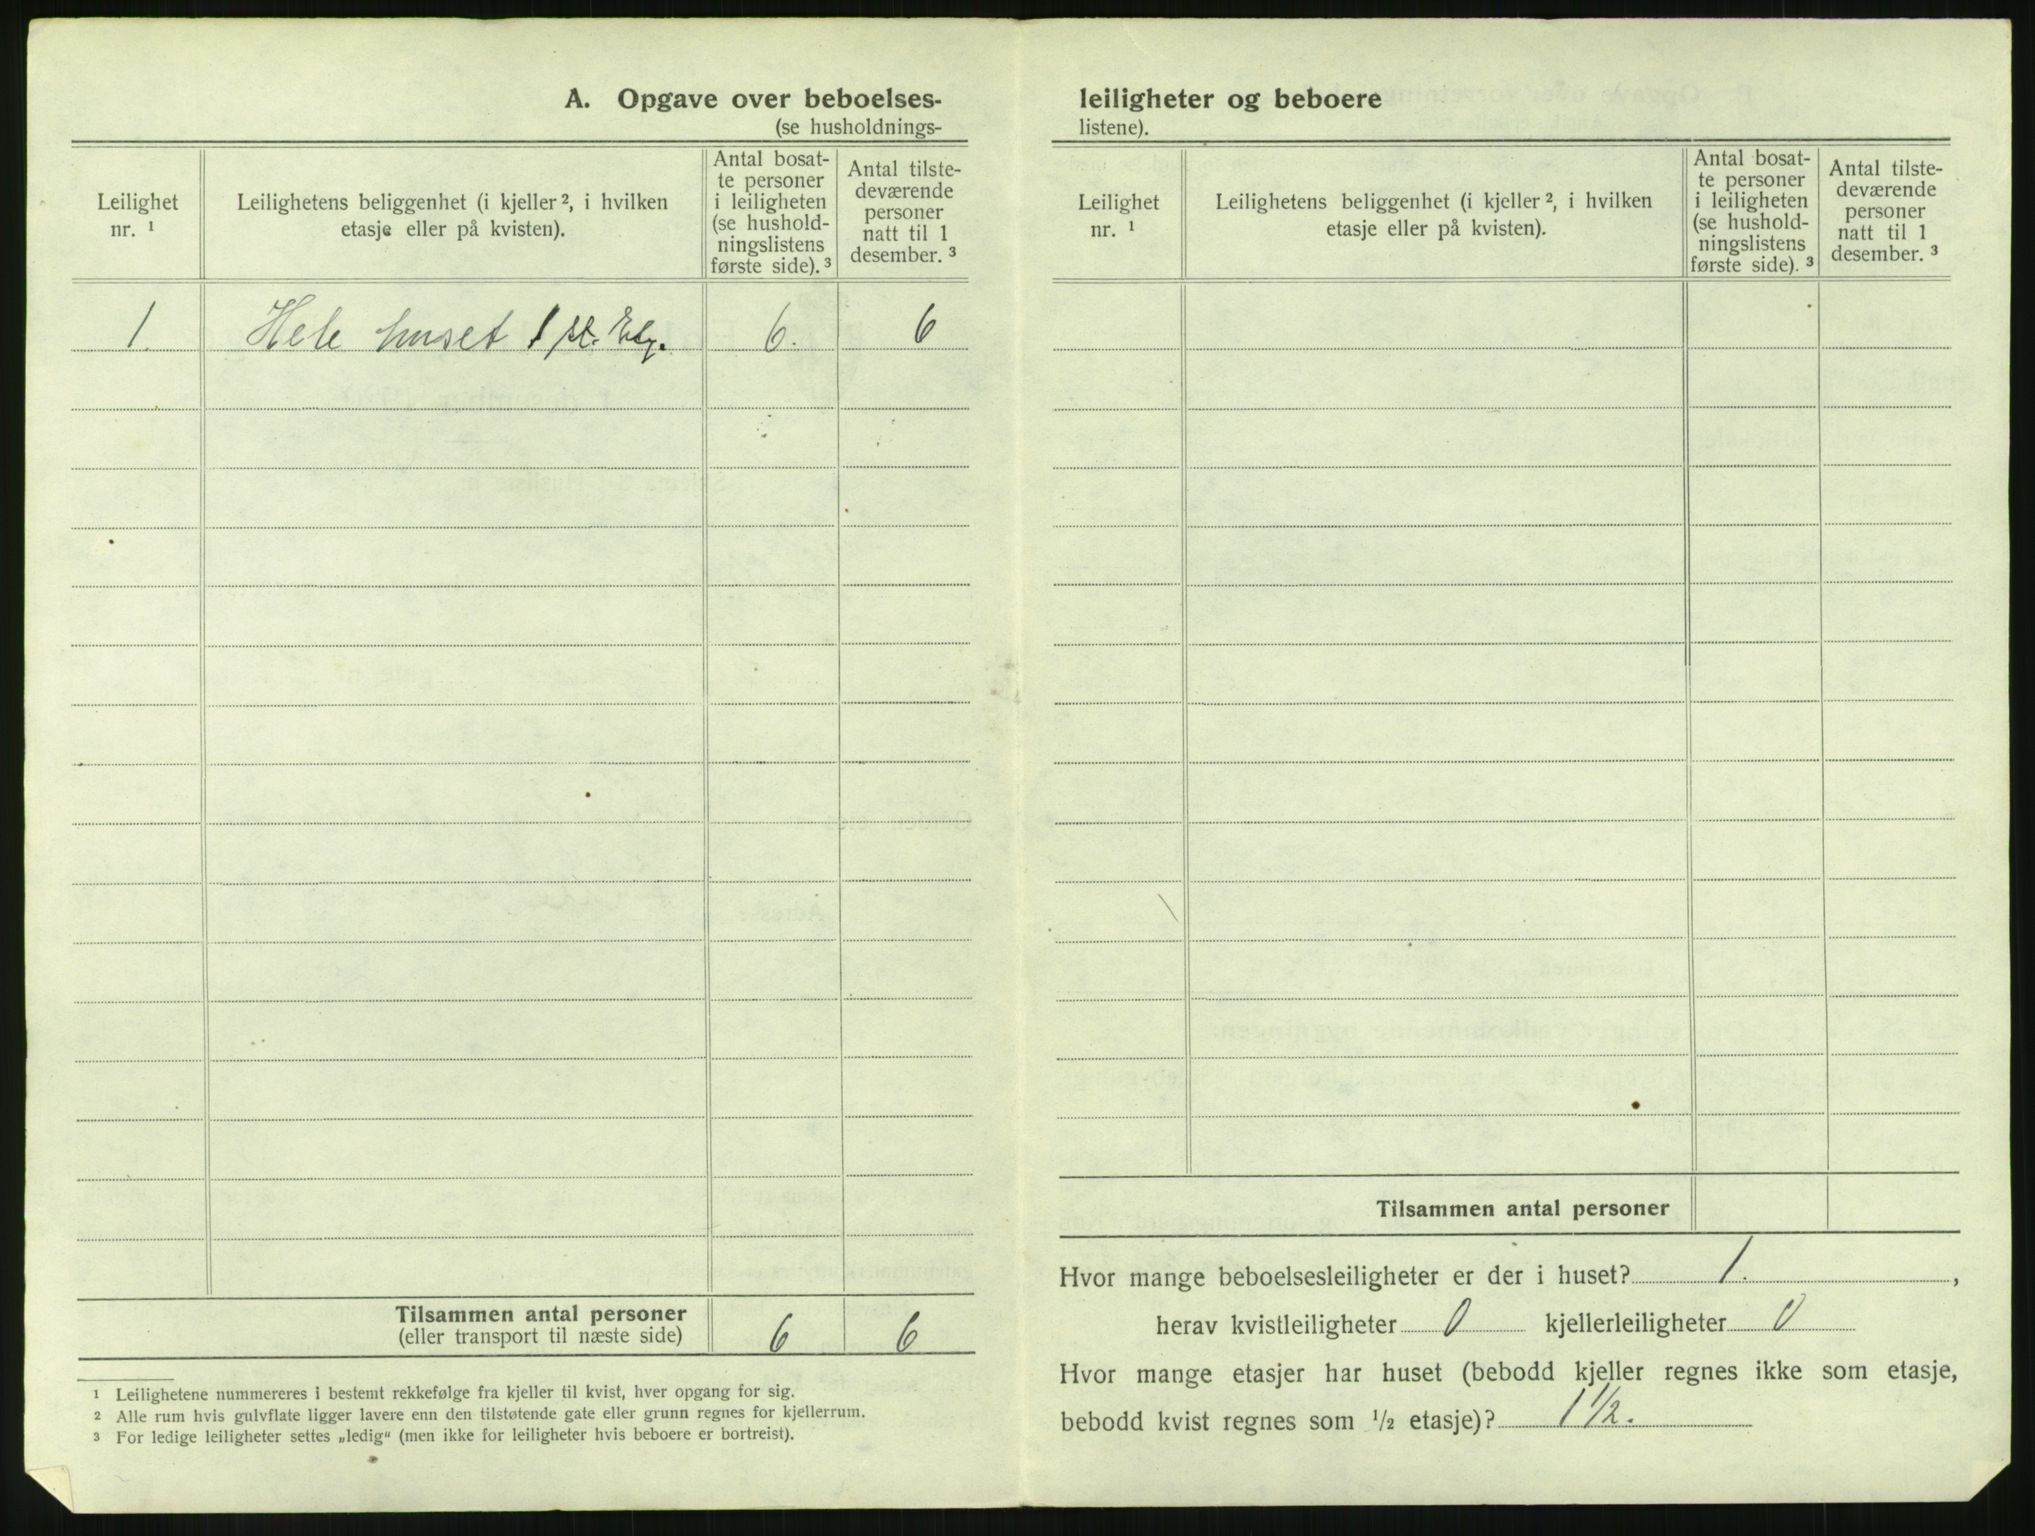 A. Opgave over beboelses-
(se husholdnings-
Leilighet
nr. ¹
Leilighetens beliggenhet (i kjeller ², i hvilken
etasje eller på kvisten).
Antal bosat-
te personer
i leiligheten
(se hushold-
ningslistens
første side). ³
Antal tilste-
deværende
personer
natt til 1
desember. ³
1. Hele huset 1 6. 6
Tilsammen antal personer
(eller transport til næste side) 6 6
¹ Leilighetene nummereres i bestemt rekkefølge fra kjeller til kvist, hver opgang for sig.
² Alle rum hvis gulvflate ligger lavere enn den tilstøtende gate eller grunn regnes for kjellerrum.
³ For ledige leiligheter settes „ledig“ (men ikke for leiligheter hvis beboere er bortreist).
leiligheter og beboere
listene).
Leilighet
nr. ¹
Leilighetens beliggenhet (i kjeller ², i hvilken
etasje eller på kvisten).
Antal bosat-
te personer
i leiligheten
(se hushold-
ningslistens
første side). ³
Antal tilste-
deværende
personer
natt til 1
desember. ³
Tilsammen antal personer
Hvor mange beboelsesleiligheter er der i huset? 1. ,
herav kvistleiligheter 0 kjellerleiligheter 0
Hvor mange etasjer har huset (bebodd kjeller regnes ikke som etasje,
bebodd kvist regnes som ½ etasje)? 1½.